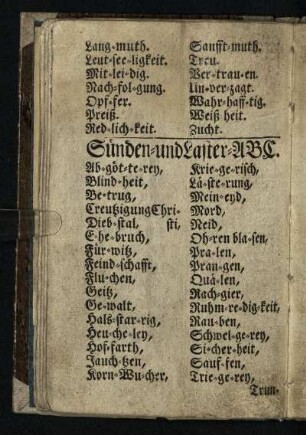 Lang⸗muth.
Leut⸗see⸗ligkeit.
Mit⸗lei⸗dig.
Nach⸗fol⸗gung.
Opf⸗fer.
Preiß.
Red⸗lich⸗keit.
Sanfft⸗muth.
Treu.
Ver⸗trau⸗en.
Un⸗ver⸗zagt.
Wahr⸗haff⸗tig.
Weiß heit.
Zucht.
Sünden⸗und Laster⸗ABC.
Ab⸗göt⸗te⸗rey,
Blind⸗heit,
Be⸗trug,
Creutzigung Chri⸗
Dieb⸗stal, sti,
E⸗he⸗bruch,
Für⸗witz,
Feind⸗schafft,
Flu⸗chen,
Geitz,
Ge⸗walt,
Hals⸗star⸗rig,
Heu⸗che⸗ley,
Hof⸗farth,
Jauch⸗tzen,
Korn⸗Wu⸗cher,
Krie⸗ge⸗risch,
Lä⸗ste⸗rung,
Mein⸗eyd,
Mord,
Neid,
Oh⸗ren bla⸗sen,
Pra⸗len,
Pran⸗gen,
Quä⸗len,
Rach⸗gier,
Ruhm⸗re⸗dig⸗keit,
Rau⸗ben,
Schwel⸗ge⸗rey,
Si⸗cher⸗heit,
Sauf⸗fen,
Trie⸗ge⸗rey,
Trun⸗